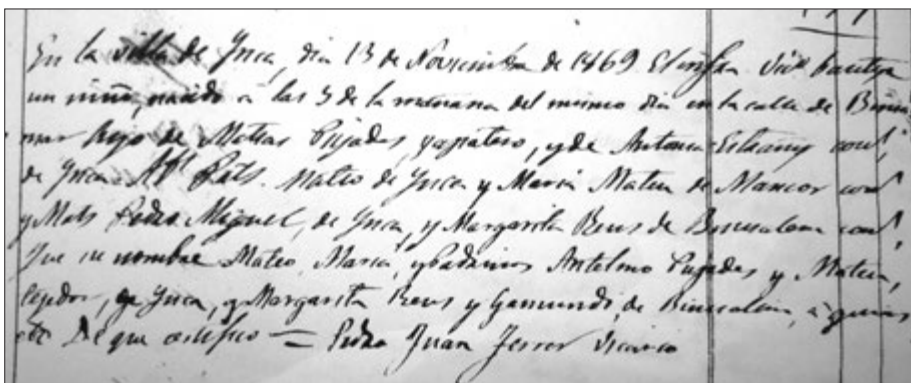 En la villa de Ynca, dia 13 de Noviembre de 1869 El infra Vic.º bautizo
un niño, nacido á las 3 de la mañana del mismo dia en la calle de
mar hijo de Matias Pujadas, zapatero, y de Antonia Estrany cons!
de Ynca. Ab.s Pats. Mateo de Ynca y Maria Mateu de Mancor cons!
y Mats Pedro Miguel, de Ynca, y Margarita Reus de Binisalem cons!
Fue su nombre Mateo, Maria, y padrinos Antelmo Pujadas y Mateu,
tejedor, de Ynca, y Margarita Reus y Gamundi, de Binisalem, á quienes
etc. De que certifico = Pedro Juan Ferrer Vicario